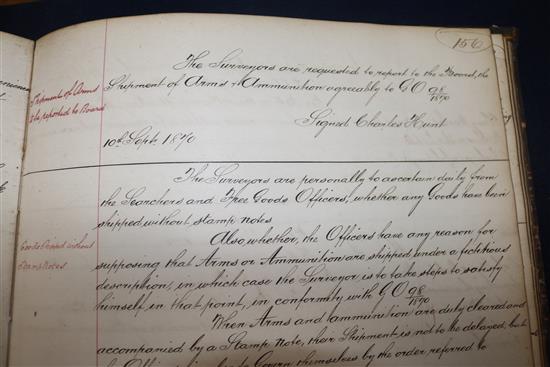 156
The Surveyors are requested to report to the Board, the
Shipment of Arms & Ammunition agreeably to GO 98/1870
Shipment of Arms
to be reported to Board
Signed Charles Hunt
10th Sept. 1870
The Surveyors are personally to ascertain daily from
the Searchers and Free Goods Officers, whether any Goods have been
shipped without stamp notes
Goods Shipped without
Stamp Notes
Also, whether, the Officers have any reason for
supposing that Arms or Ammunition are shipped under a fictitious
description, in which case the Surveyor, is to take steps to satisfy
himself, in that point, in conformity with GO 98/1870
When Arms and ammunition are duly cleared and
accompanied by a Stamp Note, their Shipment is not to be delayed, but
themselves by the order referred to